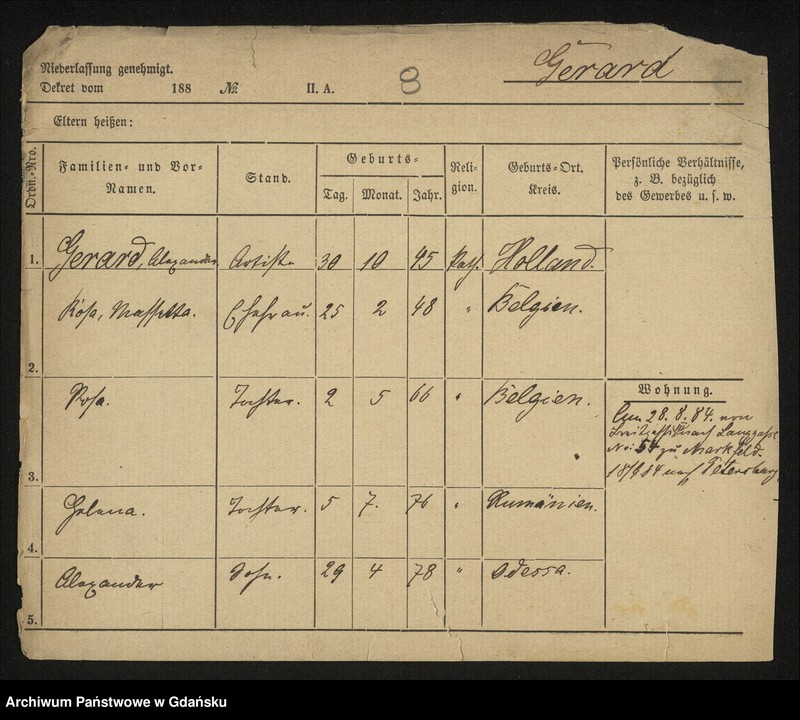 Gérard
Niederlassung genehmigt.
Dekret vom 188 No. II. A. 8
Eltern heißen:
Ordn.-Nro.
Familien- und Vor-
Namen.
Stand.
Geburts-
Tag. Monat. Jahr.
Reli-
gion.
Geburts-Ort.
Kreis.
Persönliche Verhältnisse,
z. B. bezüglich
des Gewerbes u. s. w.
1. Gerard, Alexander Artist 30 10 45 Kath. Holland.
2. Rosa, Massetta. Ehefrau. 25 2 48 " Belgien.
3. Rosa. Tochter. 2 5 66 " Belgien.
Wohnung.
28. 8. 84. von
nach Langgasse
No: 54 zu Markfeld.
nach Petersburg
4. Helena. Tochter. 5 7. 76 " Rumänien.
5. Alexander Sohn. 29 4 78 " Odessa.
Archiwum Państwowe w Gdańsku